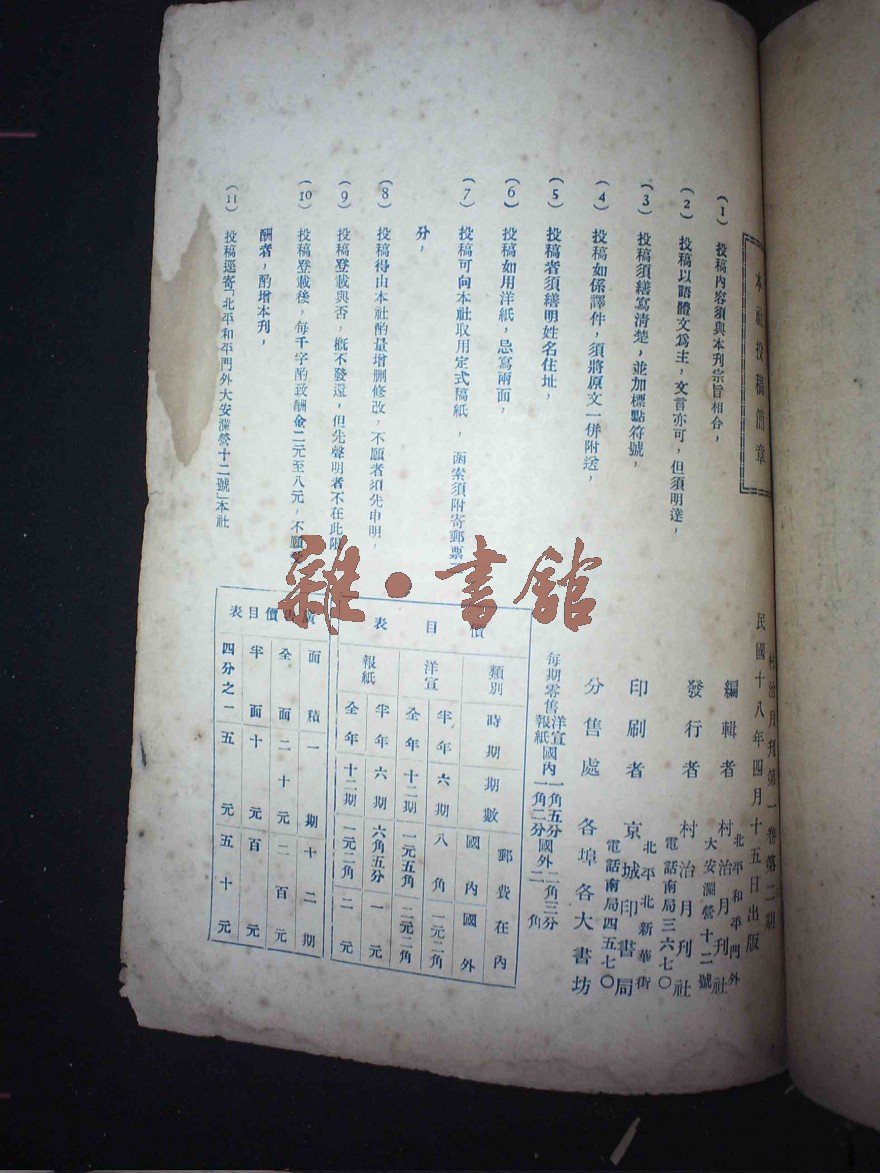 本社投稿簡章
(1) 投稿內容須與本刊宗旨相合，
(2) 投稿以語體文為主，文言亦可，但須明達，
(3) 投稿須繕寫清楚，並加標點符號，
(4) 投稿如係譯件，須將原文一併附送，
(5) 投稿者須繕明姓名住址，
(6) 投稿如用洋紙，忌寫兩面，
(7) 投稿可向本社取用定式稿紙，函索須附寄郵票
分，
(8) 投稿得由本社酌量增刪修改，不願者須先申明，
(9) 投稿登載與否，概不發還，但先聲明者不在此限
(10) 投稿登載後，每千字酌致酬金二元至八元，不願
酬者，酌增本刊，
(11) 投稿逕寄「北平和平門外大安瀾營十二號」本社
村治月刊第一卷第二期
民國十八年四月十五日出版
編輯者 村治月刊社
北平和平門外
大安瀾營十二號
發行者 村治月刊社
電話南局三六七〇
印刷者 京城印書局
北平北新華街
電話南局四五七〇
分售處 各埠各大書坊
每期零售洋宣國內一角五分國外二角三分
報紙 一角二分 二角
價目表
類別 時期 期數 郵費在內 國內 國外
洋宣 半年 六期 八角 一元二角
全年 十二期 一元五角 二元二角
報紙 半年 六期 六角五分 一元
全年 十二期 一元二角 二元
廣告價目表
面積 一期 十二期
全面 二十元 二百元
半面 十元 百元
四分之一 五元 五十元
雜·書館